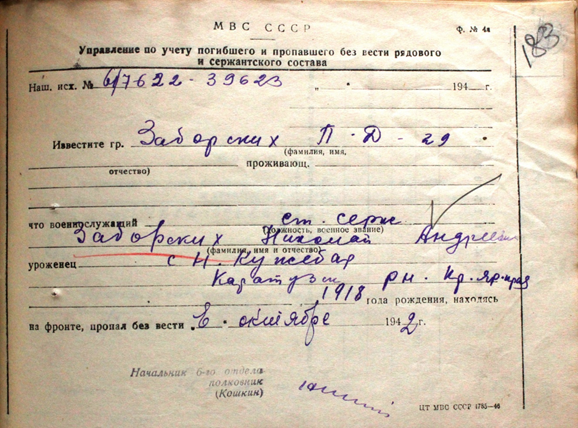 МВС СССР
Ф. № 4а
183
Управление по учету погибшего и пропавшего без вести рядового
и сержантского состава
Наш. исх. № 6/7622-39623 „ " 194 г.
Известите гр. Заборских П. Д-
(фамилия, имя,
отчество) проживающ.
что военнослужащий ст. серж
(должность, военное звание)
Заборских Николай
(фамилия, имя и отчество)
уроженец с Н. Кужебая
Каратузк рн. Кр. яр. края
1918 года рождения, находясь
на фронте, пропал без вести в октябре 1942 г.
Начальник 6-го отдела
полковник
(Кошкин)
ЦТ МВС СССР 1785—46